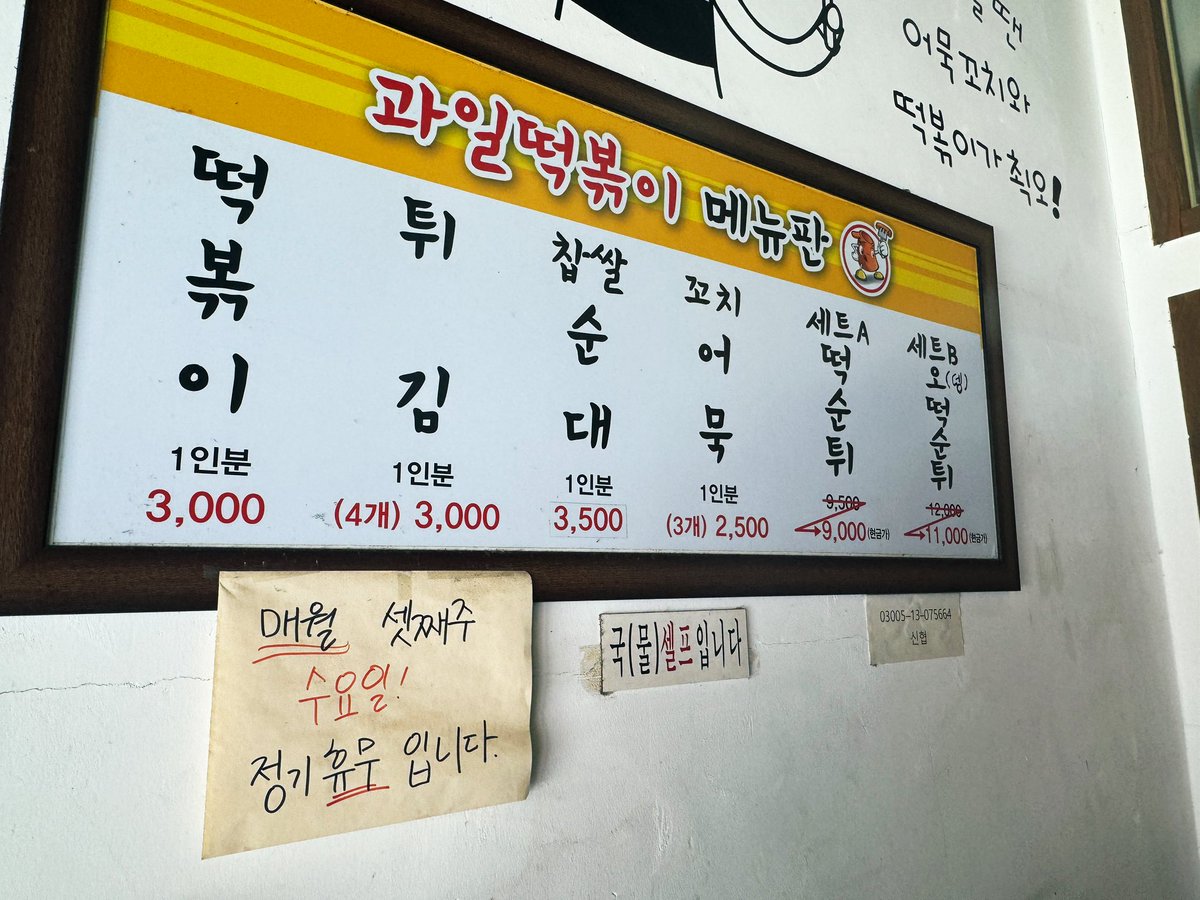 땐
어묵꼬치와
떡볶이가 최오!
과일떡볶이 메뉴판
떡볶이
1인분
3,000
튀김
1인분
(4개) 3,000
찹쌀순대
1인분
3,500
꼬치어묵
1인분
(3개) 2,500
세트A
떡순튀
9,500
9,000(현금가)
세트B
오(뎅)떡순튀
12,000
11,000(현금가)
매월 셋째주
수요일!
정기휴무 입니다.
국(물)셀프입니다
03005-13-075664
신협